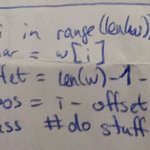 i in range(len(w))
ar = w[i]
fset = len(w)-1-
pos = i - offset
ass #do stuff